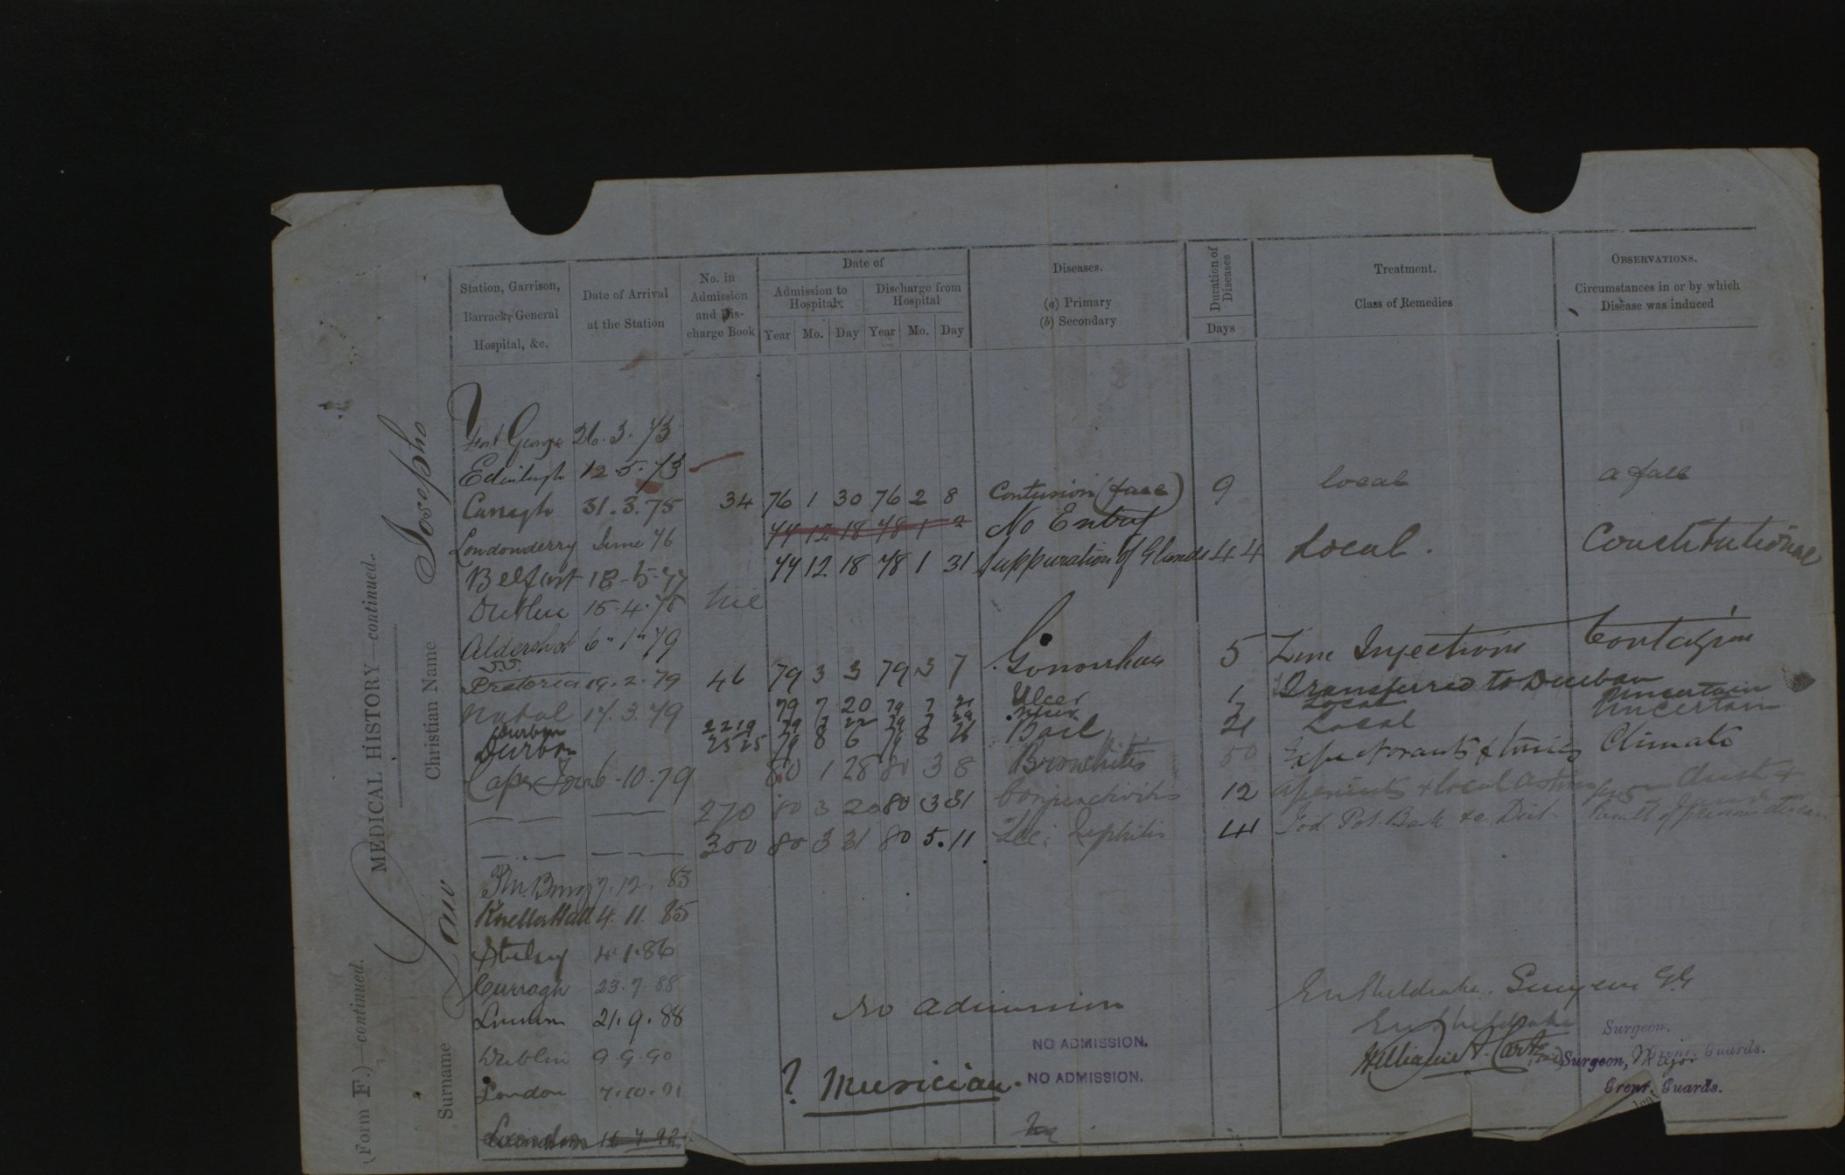 (Form F.)—continued.
MEDICAL HISTORY—continued.
Surname Law Christian Name Joseph
Station, Garrison, Barrack, General Hospital, &c.
Date of Arrival at the Station
No. in Admission and Discharge Book
Date of
Admission to Hospital
Discharge from Hospital
Year Mo. Day Year Mo. Day
Diseases.
(a) Primary
(b) Secondary
Duration of Diseases
Days
Treatment.
Class of Remedies
OBSERVATIONS.
Circumstances in or by which Disease was induced
Fort George 26.3.73
Edinburgh 12.5.73
Curragh 31.3.75 34 76 1 30 76 2 8 Contusion (face) 9 local a fall
Londonderry June 76 77 12 18 78 1 2 No Entry
Belfast 18-5-77 77 12 18 78 1 31 Suppuration of Glands 44 Local. Constitutional
Dublin 15.4.78 nil
Aldershot 6"1"79
Pretoria 19.2.79 46 79 3 3 79 3 7 Gonorrhoea 5 Zinc Injections Contagion
Natal 17.3.79 79 7 20 79 7 21 Ulcer 1 Transferred to Durban
Durban 2219 79 7 22 79 7 Ulcer 7 Local Uncertain
Durban 2525 79 8 6 79 8 26 Boil 21 Local Uncertain
Cape Town 6-10-79 80 1 28 80 3 8 Bronchitis 50 Expectorants & tonics Climate
270 80 3 20 80 3 31 Conjunctivitis 12 aperients & local
300 80 3 31 80 5.11 Syphilis 41 Iod. Pot.
7.12.83
Kneller Hall 4.11.85
4.1.86
Curragh 23.7.88
London 21.9.88 No admission Surgeon G.G.
Dublin 9.9.90 NO ADMISSION. Surgeon.
Grenr. Guards.
London 7.10.91 ? Musician. NO ADMISSION. William Carte Surgeon, Major
Grenr. Guards.
London 16 7 92